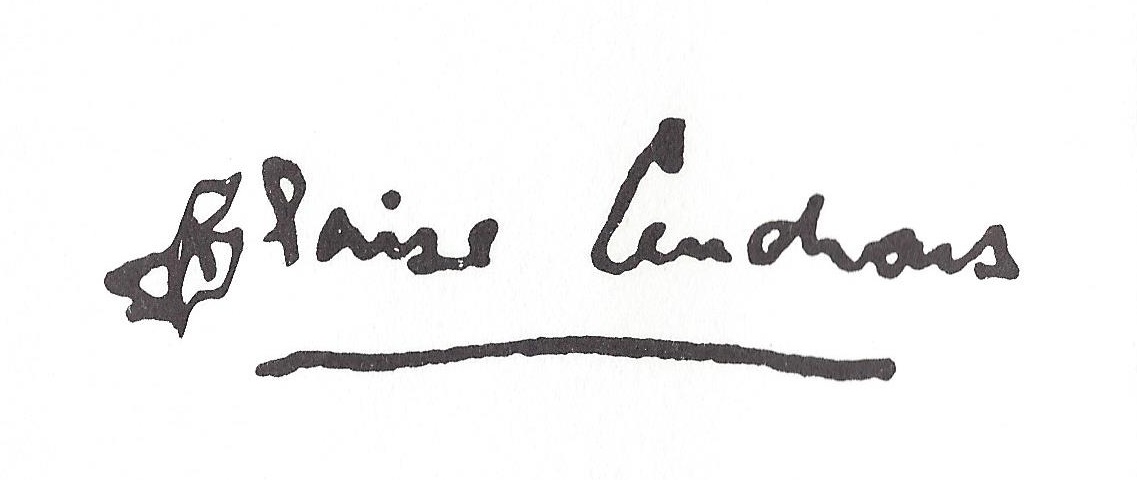 Blaise Cendrars